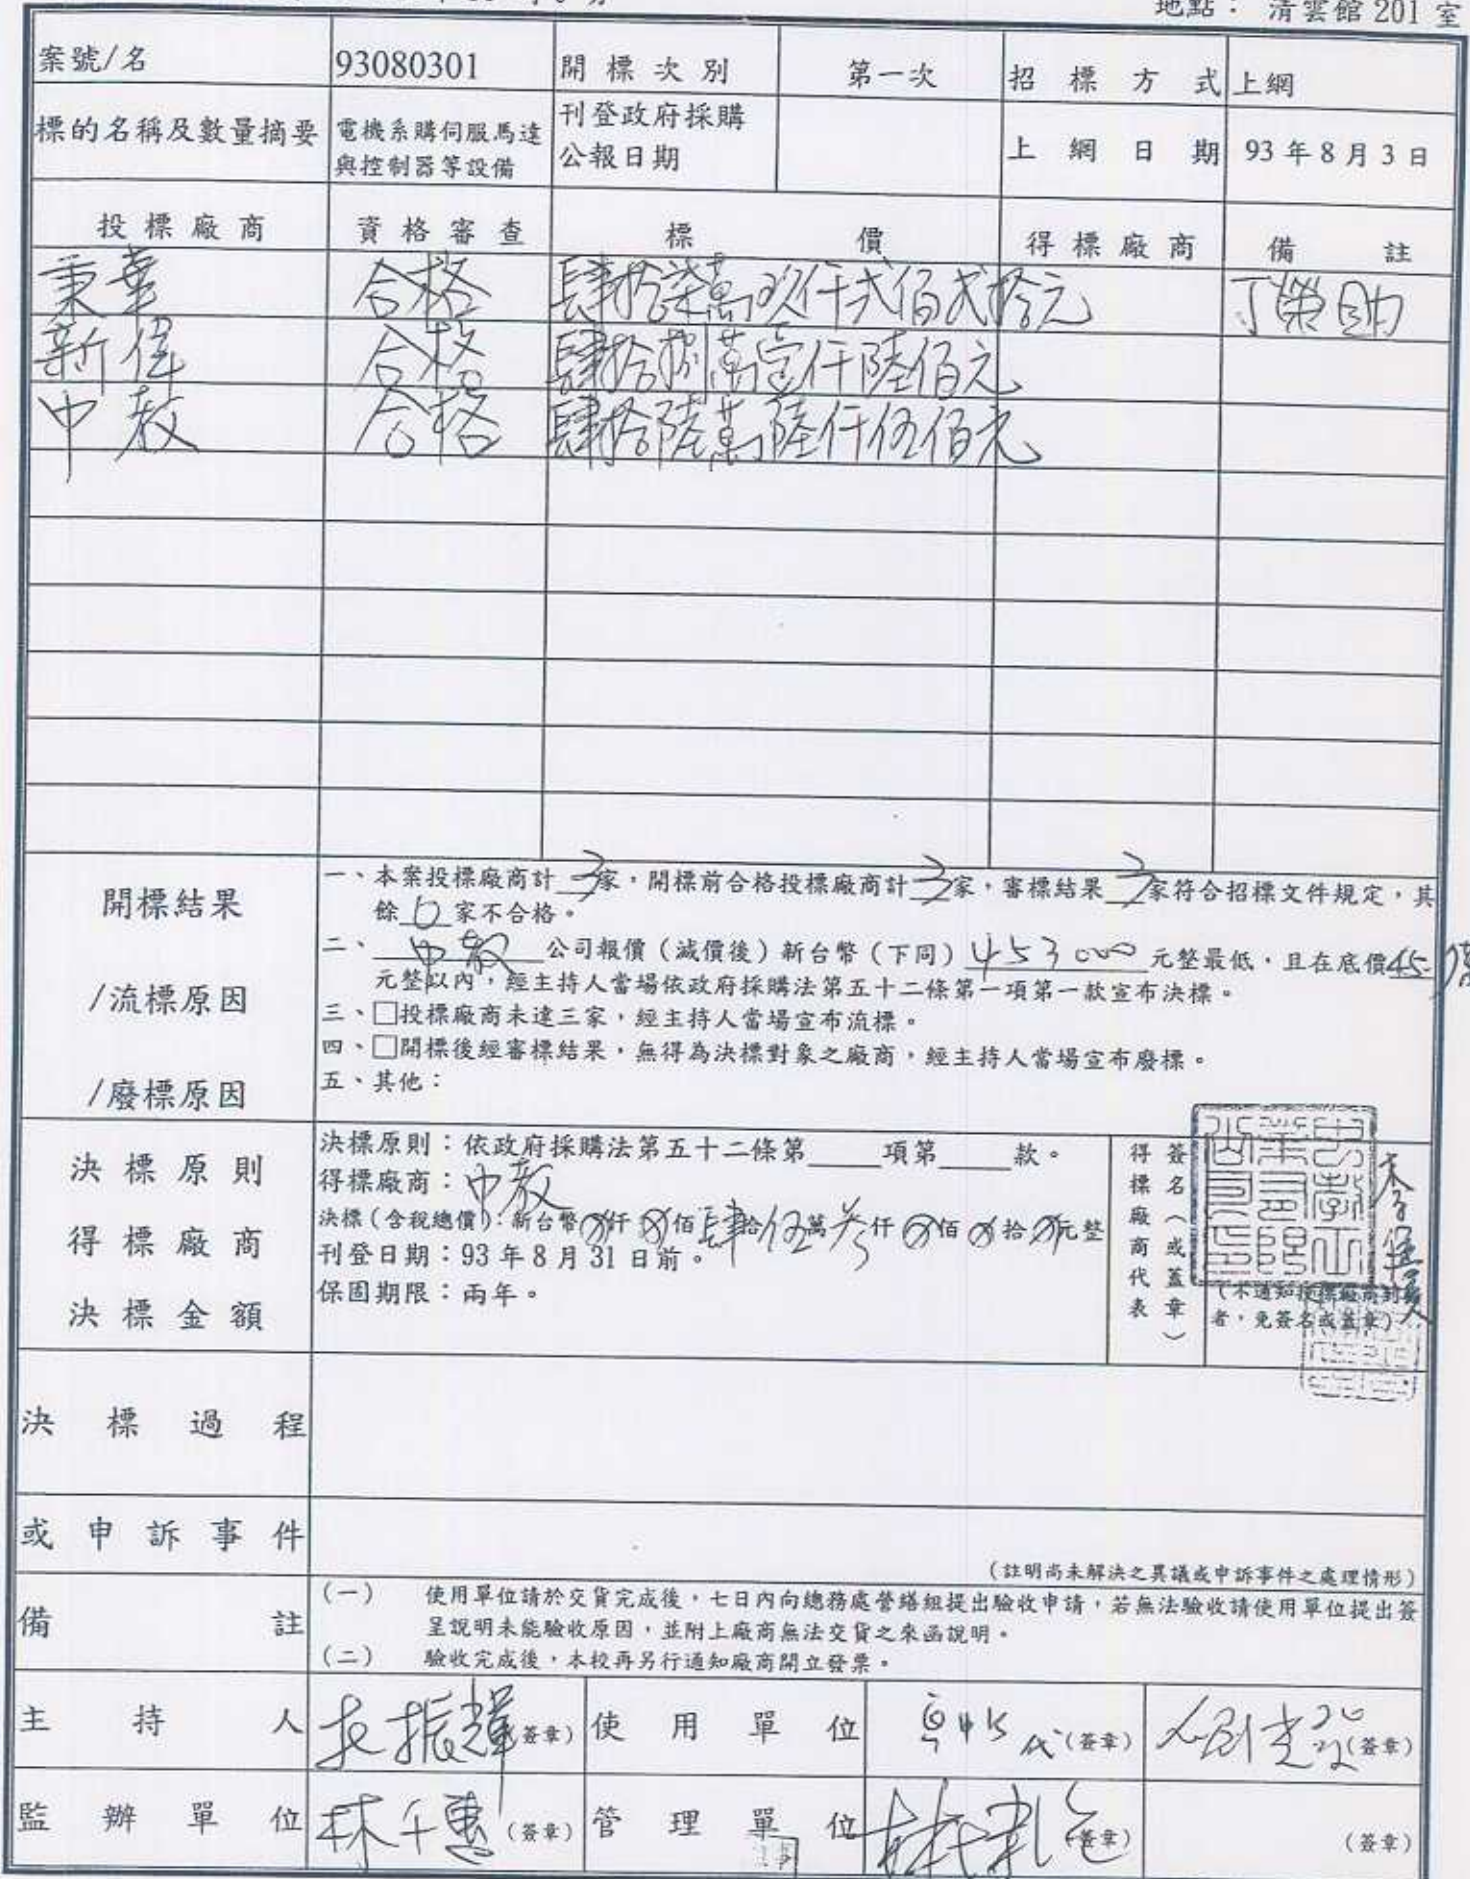 地點： 清雲館 201 室
案號/名 93080301 開標次別 第一次 招標方式 上網
標的名稱及數量摘要 電機系購伺服馬達與控制器等設備 刊登政府採購公報日期 上網日期 93 年 8 月 3 日
投標廠商 資格審查 標價 得標廠商 備註
秉華 合格 肆拾柒萬玖仟弍佰弍拾元 丁榮助
新偉 合格 肆拾捌萬壹仟陸佰元
中教 合格 肆拾陸萬陸仟伍佰元
開標結果
/流標原因
/廢標原因
一、本案投標廠商計 3 家，開標前合格投標廠商計 3 家，審標結果 3 家符合招標文件規定，其
餘 0 家不合格。
二、 中教 公司報價（減價後）新台幣（下同） 453000 元整最低，且在底價
元整以內，經主持人當場依政府採購法第五十二條第一項第一款宣布決標。
三、□投標廠商未達三家，經主持人當場宣布流標。
四、□開標後經審標結果，無得為決標對象之廠商，經主持人當場宣布廢標。
五、其他：
決標原則
得標廠商
決標金額
決標原則：依政府採購法第五十二條第____項第____款。
得標廠商：中教
決標(含稅總價)：新台幣 仟 佰肆拾伍萬參仟 佰 拾 元整
刊登日期：93 年 8 月 31 日前。
保固期限：兩年。
得標廠商代表
簽名（或蓋章）
（不通知投標廠商到場
者，免簽名或蓋章）
決標過程
或申訴事件
(註明尚未解決之異議或申訴事件之處理情形)
備註
（一） 使用單位請於交貨完成後，七日內向總務處營繕組提出驗收申請，若無法驗收請使用單位提出簽
呈說明未能驗收原因，並附上廠商無法交貨之來函說明。
（二） 驗收完成後，本校再另行通知廠商開立發票。
主持人 (簽章) 使用單位 (簽章) (簽章)
監辦單位 林千惠 (簽章) 管理單位 (簽章) (簽章)